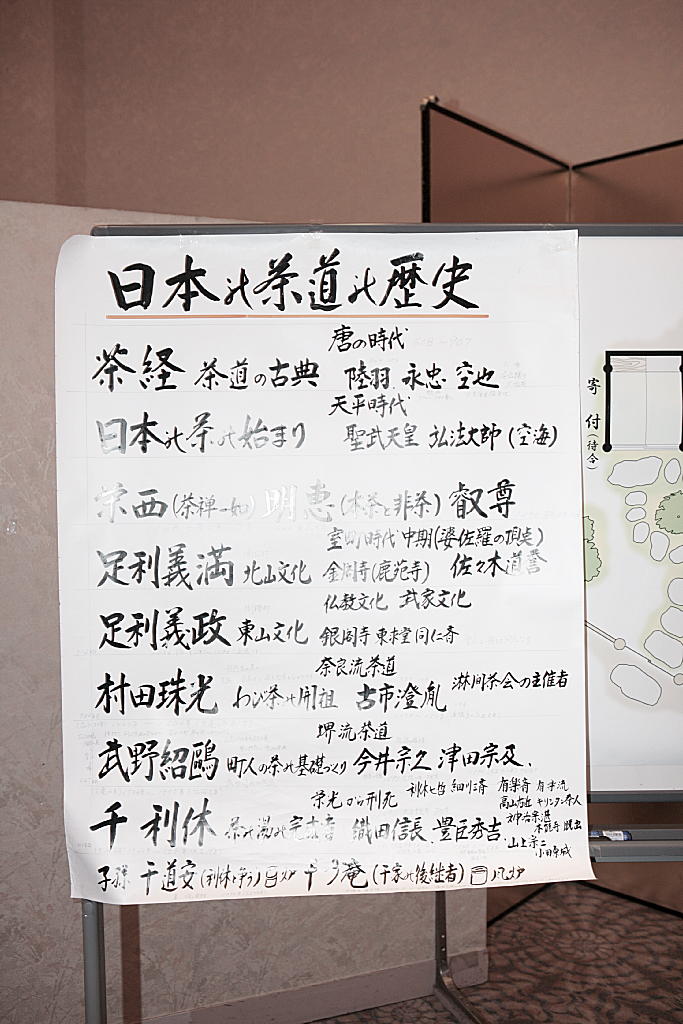 日本の茶道の歴史
唐の時代
茶経 茶道の古典 陸羽 永忠 空也
天平時代
日本の茶の始まり 聖武天皇 弘法大師(空海)
栄西(茶禅一如) 明恵(本茶と非茶) 叡尊
室町時代中期(婆佐羅の頂点)
足利義満 北山文化 金閣寺(鹿苑寺) 佐々木道誉
仏教文化 武家文化
足利義政 東山文化 銀閣寺 東求堂 同仁斎
奈良流茶道
村田珠光 わび茶の開祖 古市澄胤 淋間茶会の主催者
堺流茶道
武野紹鷗 町人の茶の基礎づくり 今井宗久 津田宗及.
栄光から刑死 利休七哲 細川三斎 有楽斎 有楽流
高山右近 キリシタン
千利休 茶の湯の完成者 織田信長.豊臣秀吉.
山上宗二
子孫 千道安(利休と争う) 千少庵(千家の後継者)
寄付(待合)